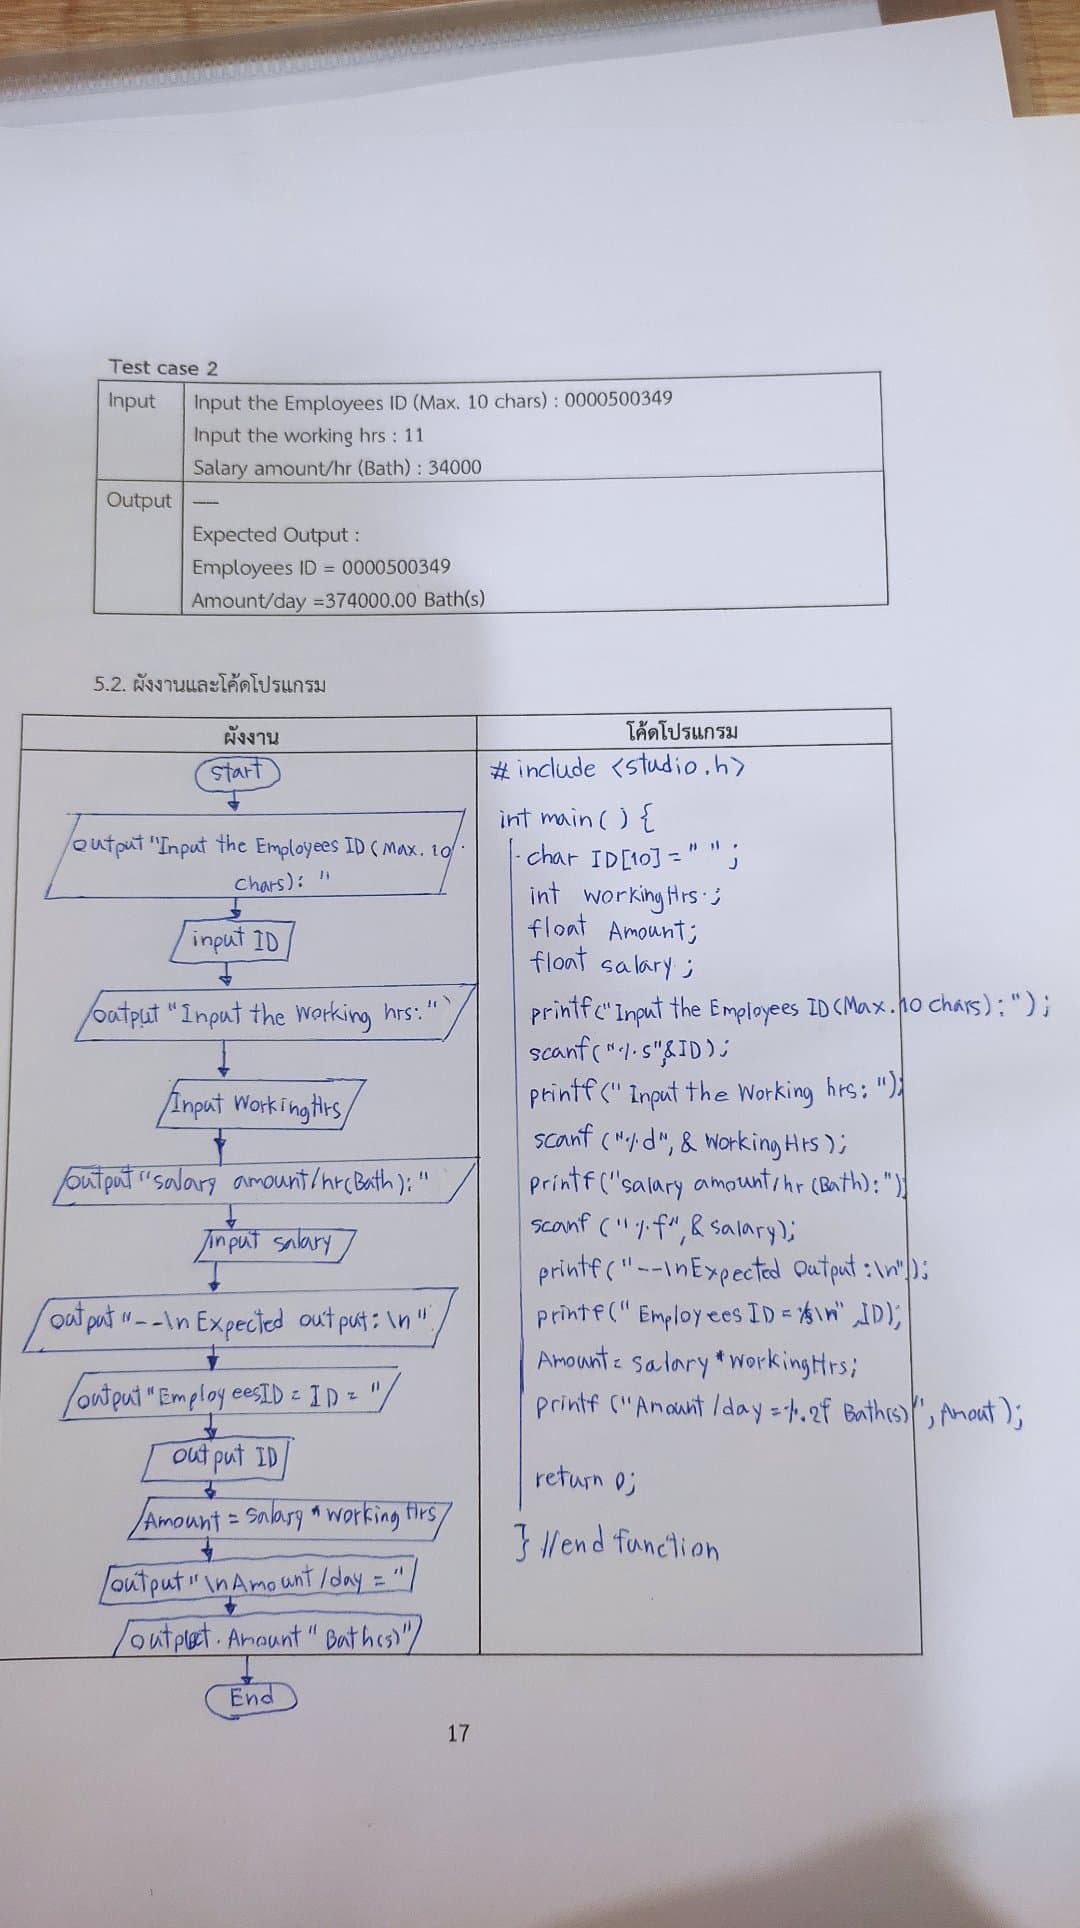 Test case 2
Input
Input the Employees ID (Max. 10 chars) : 0000500349
Input the working hrs : 11
Salary amount/hr (Bath) : 34000
Output
----
Expected Output :
Employees ID = 0000500349
Amount/day =374000.00 Bath(s)
5.2. ผังงานและโค้ดโปรแกรม
ผังงาน
start
output "Input the Employees ID (Max. 10
chars): "
input ID
output "Input the Working hrs:"
Input WorkingHrs
output "salary amount/hr(Bath):"
Input salary
output "--\n Expected output: \n"
output "EmployeesID = ID = "
output ID
Amount = Salary * working Hrs
output "\nAmount /day = "
output. Amount " Bath(s)"
End
โค้ดโปรแกรม
# include <studio.h>
int main( ) {
char ID[10] = " " ;
int workingHrs ;
float Amount;
float salary ;
printf("Input the Employees ID (Max. 10 chars) : ") ;
scanf("%s",&ID);
printf(" Input the Working hrs: ");
scanf ("%d", & WorkingHrs );
printf("salary amount/hr (Bath):");
scanf ("%f", & salary);
printf("--\nExpected Output :\n");
printf(" Employees ID = %s\n" ,ID);
Amount = salary * workingHrs;
printf ("Amount /day = %.2f Bath(s)", Amout );
return 0;
} //end function
17